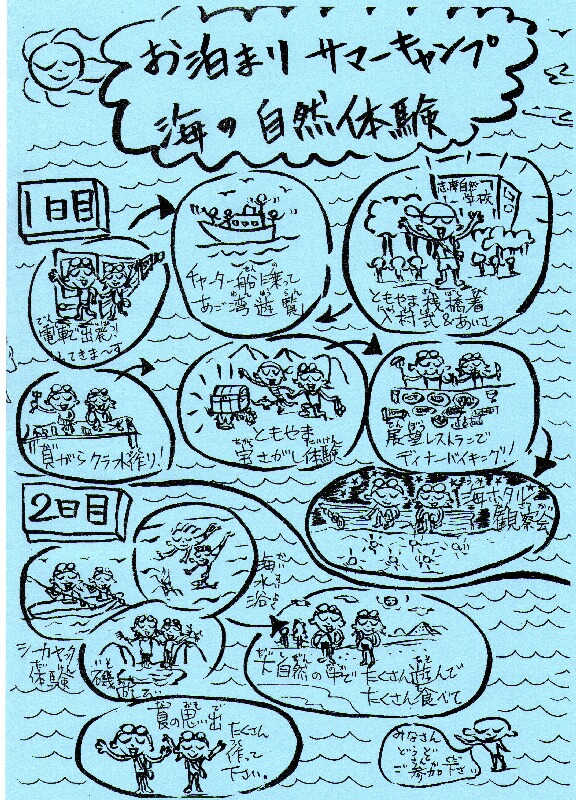 お泊まり サマーキャンプ
海の自然体験
1日目
電車で出発!
いってきま〜す
チャーター船に乗って
あご湾遊覧!
志摩自然
学校
ともやま桟橋着
入村式&あいさつ
貝がらクラフト作り!
ともやま
宝さがし体験
展望レストランで
ディナーバイキング!!
海ホタル
観察会
2日目
シーカヤック
体験
海水浴
磯
大自然の中で
たくさん遊んで
たくさん食べて
夏の思い出
たくさん
作って
下さい。
みなさん
どうぞ
ご参加下さい